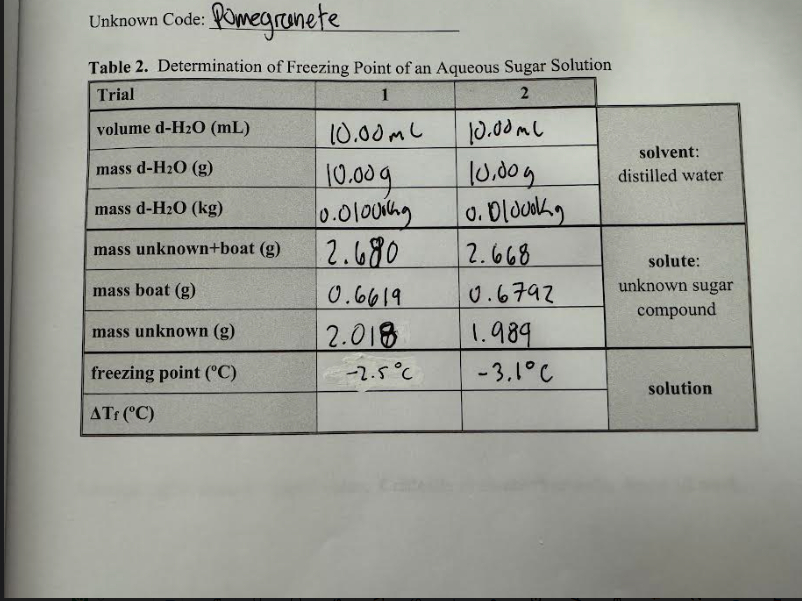 Unknown Code: Pomegranete
Table 2. Determination of Freezing Point of an Aqueous Sugar Solution
Trial 1 2
volume d-H2O (mL) 10.00mL 10.00mL
mass d-H2O (g) 10.00g 10.00g
solvent:
distilled water
mass d-H2O (kg) 0.01000kg 0.01000kg
mass unknown+boat (g) 2.680 2.668
mass boat (g) 0.6619 0.6792
solute:
unknown sugar
compound
mass unknown (g) 2.018 1.989
freezing point (°C) -2.5°C -3.1°C
solution
ΔTf (°C)